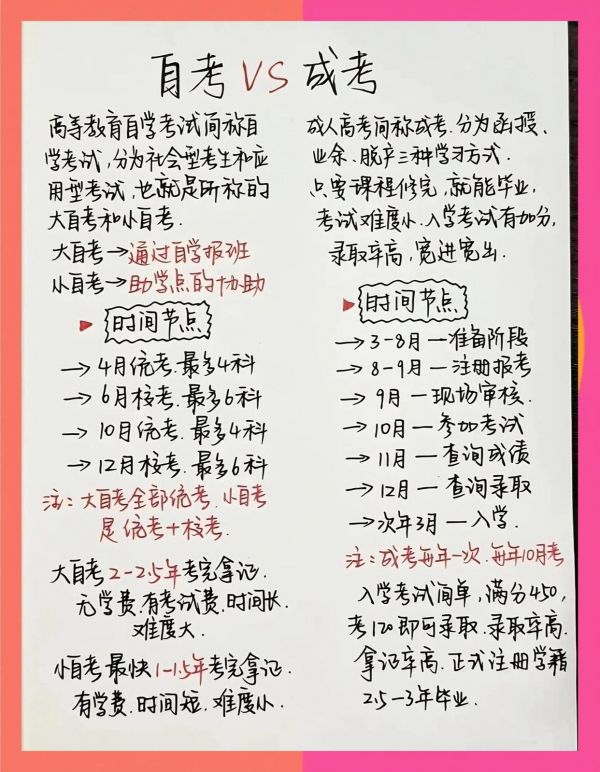 自考VS成考
高等教育自学考试简称自
学考试,分为社会型考生和应
用型考试,也就是所称的
大自考和小自考.
大自考→通过自学报班
小自考→助学点的协助
时间节点
→4月统考.最多4科
→6月校考.最多6科
→10月统考.最多4科
→12月校考.最多6科
注:大自考全部统考.小自考
是统考+校考.
大自考2-2.5年考完拿证.
无学费.有考试费.时间长.
难度大.
小自考最快1-1.5年考完拿证.
有学费.时间短.难度小.
成人高考简称成考.分为函授、
业余、脱产三种学习方式.
只要课程修完,就能毕业,
考试难度小.入学考试有加分,
录取率高,宽进宽出.
时间节点
→3-8月—准备阶段
→8-9月—注册报考
→9月—现场审核.
→10月—参加考试
→11月—查询成绩
→12月—查询录取
→次年3月—入学.
注:成考每年一次.每年10月考
入学考试简单,满分450,
考120即可录取.录取率高.
拿证率高.正式注册学籍
2.5-3年毕业.